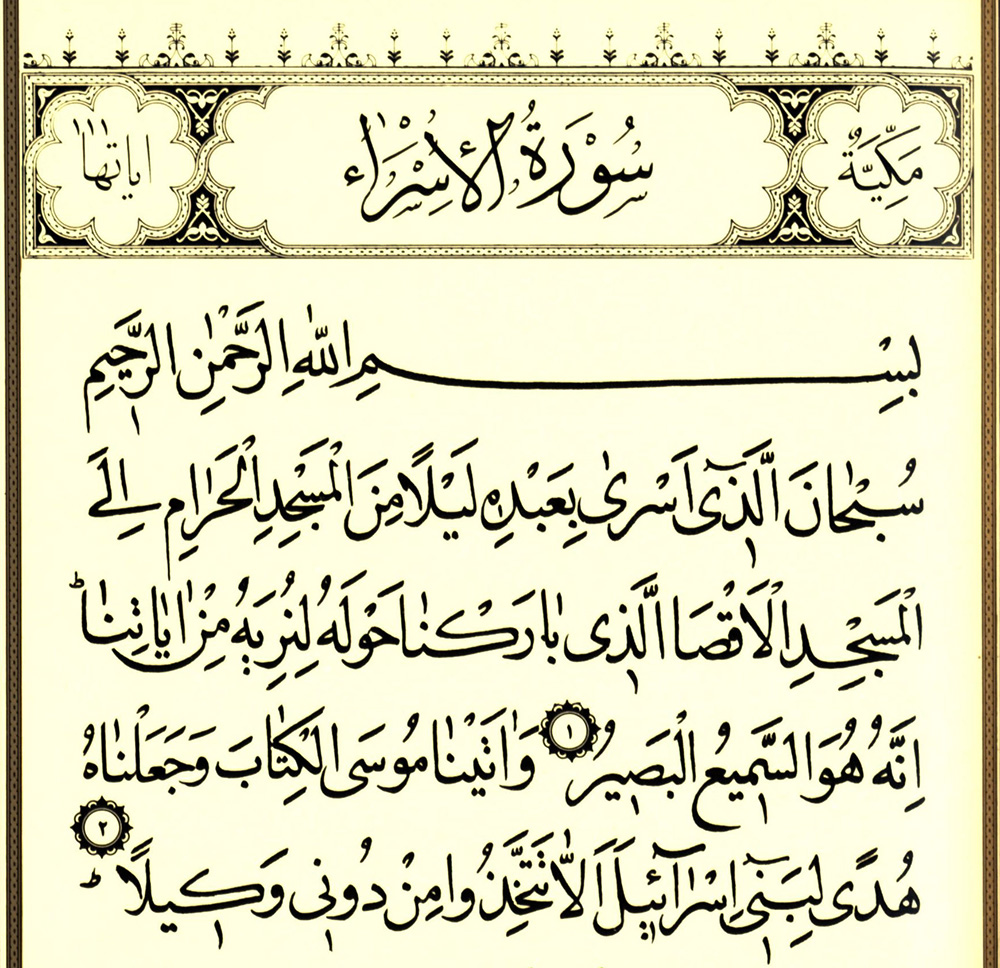 مَكِّيَّةٌ سُوْرَةُ الْاِسْرَاءِ اٰيَاتُهَا
بِسْمِ اللّٰهِ الرَّحْمٰنِ الرَّحِيمِ
سُبْحٰانَ الَّذ۪ٓى اَسْرٰى بِعَبْدِه۪ لَيْلًا مِنَ الْمَسْجِدِ الْحَرَامِ اِلَى
الْمَسْجِدِ الْاَقْصَا الَّذ۪ى بٰارَكْنٰا حَوْلَهُ لِنُرِيَهُ مِنْ اٰيٰاتِنٰا ط
اِنَّهُ هُوَ السَّم۪يعُ الْبَص۪يرُ ١ وَاٰتَيْنٰا مُوسَى الْكِتٰابَ وَجَعَلْنٰاهُ
هُدًى لِبَن۪ٓى اِسْرَٓائ۪لَ اَلَّا تَتَّخِذُوا مِنْ دُون۪ى وَك۪يلًا ط ٢